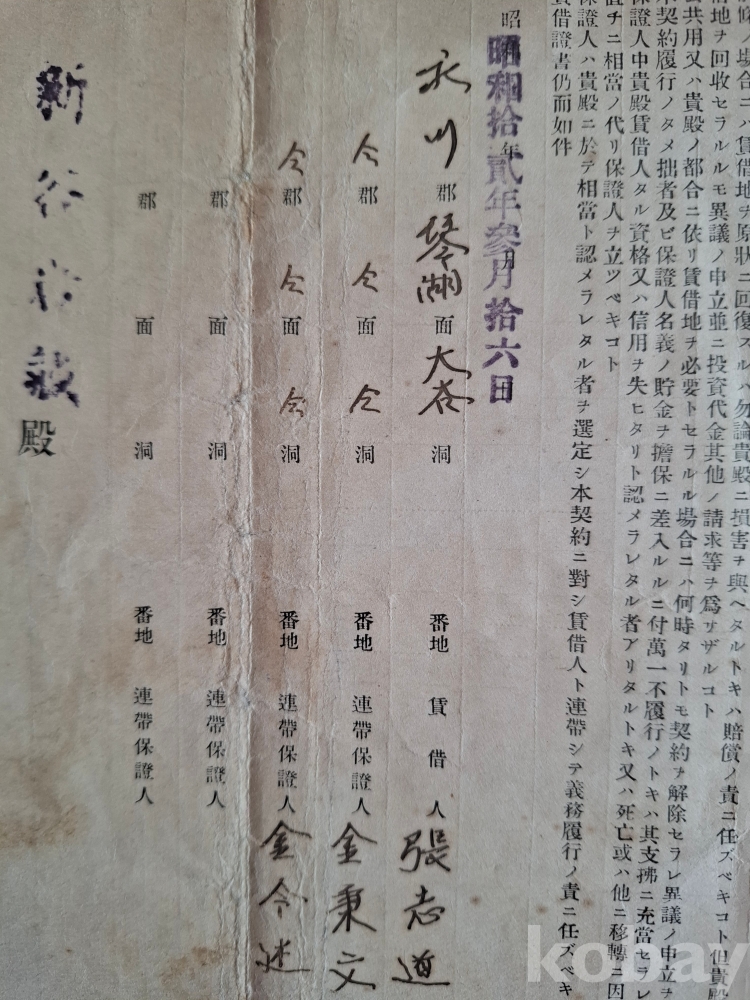 條ノ場合ニハ賃借地ヲ原狀ニ回復スルハ勿論貴殿ニ損害ヲ與ヘタルトキハ賠償ノ責ニ任ズベキコト但貴殿
借地ヲ回收セラルルモ異議ノ申立並ニ投資代金其他ノ請求等ヲ爲サザルコト
公共用又ハ貴殿ノ都合ニ依リ賃借地ヲ必要トセラルル場合ニハ何時タリトモ契約ヲ解除セラレ異議ノ申立ヲ
本契約履行ノタメ拙者及ビ保證人名義ノ貯金ヲ擔保ニ差入ルルニ付萬一不履行ノトキハ其支拂ニ充當セラレ
保證人中貴殿賃借人タル資格又ハ信用ヲ失ヒタリト認メラレタル者アリタルトキ又ハ死亡或ハ他ニ移轉ニ因
値チニ相當ノ代リ保證人ヲ立ツベキコト
保證人ハ貴殿ニ於テ相當ト認メラレタル者ヲ選定シ本契約ニ對シ賃借人ト連帶シテ義務履行ノ責ニ任ズベキ
賃借證書仍而如件
昭 年 月
昭和拾貳年參月拾六日
永川郡 琴湖面 大谷洞 番地 賃借人 張志道
仝郡 仝面 仝洞 番地 連帶保證人 金秉文
仝郡 仝面 仝洞 番地 連帶保證人 金令述
郡 面 洞 番地 連帶保證人
郡 面 洞 番地 連帶保證人
新谷 殿
kobay